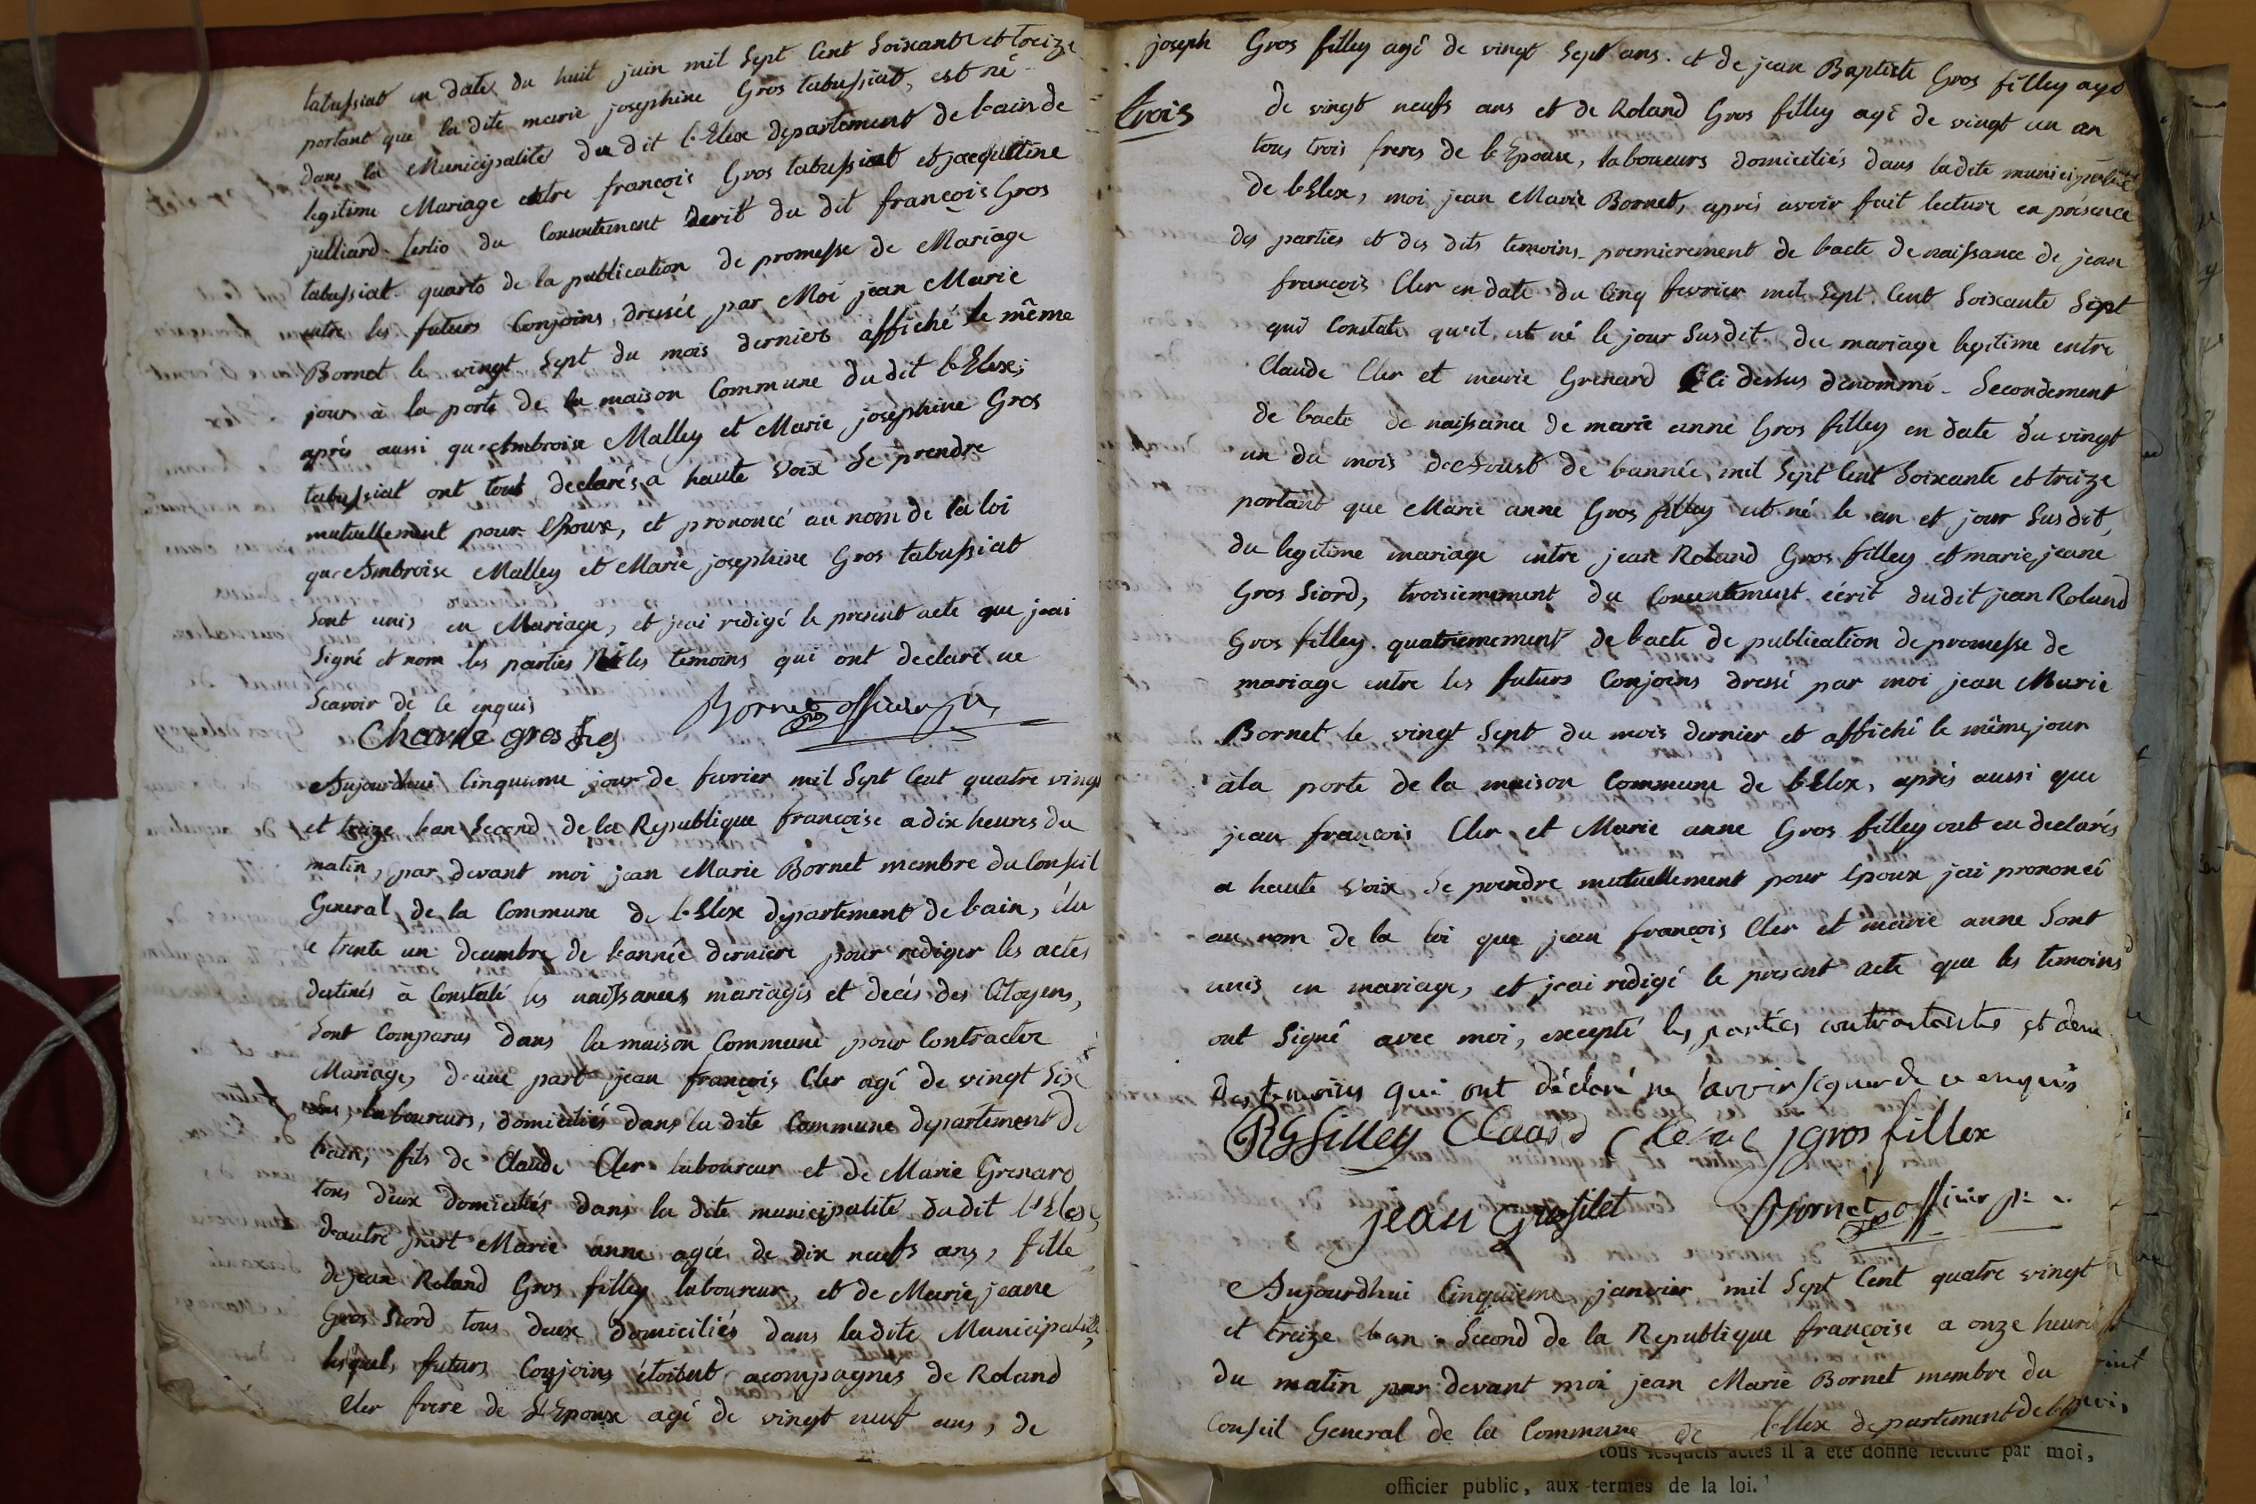 tabussiat en date du huit juin mil Sept Cent Soixante et treize
portant que la dite marie josephine Gros tabussiat, est né
dans la Municipalité du dit l'Elex departement de l'ain de
legitime Mariage entre françois Gros tabussiat et jacqueline
julliard. tertio du Consentement écrit du dit françois Gros
tabussiat. quarto de la publication de promesse de Mariage
entre les futurs Conjoins dressée par Moi jean Marie
Bornet le vingt Sept du mois dernier affiché le même
jour à la porte de la maison Commune du dit l'Elex;
aprés aussi qu'Ambroise Malley et Marie josephine Gros
tabussiat ont tout declarés a haute voix Se prendre
mutuellement pour Epoux, et prononcé au nom de la loi
qu'Ambroise Malley et Marie josephine Gros tabussiat
Sont unis en Mariage, et j'ai redigé le present acte que j'ai
Signé et nom les parties Ni les temoins qui ont declaré ne
Scavoir de ce enquis
Bornet officier p.
Charle gros
Aujourdhui Cinquieme jour de fevrier mil Sept Cent quatre vingt
et treize l'an Second de la Republique françoise a dix heures du
matin, par devant moi jean Marie Bornet membre du Conseil
General de la Commune de l'Elex departement de l'ain, élu
le trente un decembre de l'année derniere pour rediger les actes
destinés à Constaté les naissances mariages et decés des Citoyens,
Sont Comparus dans la maison Commune pour Contracter
Mariage, d'une part jean françois Cler agé de vingt Six
ans, laboureurs, domiciliés dans la dite Commune departement de
l'ain, fils de Claude Cler laboureur et de Marie Grenard
tous deux domiciliés dans la dite municipalité du dit l'Elex,
d'autre part Marie anne agée de dix neufs ans, fille
de jean Roland Gros filley laboureur, et de Marie jeane
Gros Siord tous deux domiciliés dans la dite Municipalité,
lesquels futurs Conjoins étoient acompagnés de Roland
Cler frere de l'Epoux agé de vingt neuf ans, de
joseph Gros filley agé de vingt Sept ans. et de jean Baptiste Gros filley agé
trois
de vingt neufs ans et de Roland Gros filley agé de vingt un an
tous trois freres de l'Epouse, laboureurs domiciliés dans la dite municipalité
de l'Elex, moi jean Marie Bornet, aprés avoir fait lecture en présence
des parties et des dits temoins. premierement de l'acte de naissance de jean
françois Cler en date du Cinq fevrier mil Sept Cent Soixante Sept
qui Constate qu'il est né le jour Susdit du mariage legitime entre
Claude Cler et marie Grenard Ci dessus denommé. Secondement
de l'acte de naissance de marie anne Gros filley en date du vingt
un du mois d'Aoust de l'année mil Sept Cent Soixante et treize
portant que Marie anne Gros filley est né le an et jour Susdit,
du legitime mariage entre jean Roland Gros filley et marie jeane
Gros Siord, troisiemement du Consentement écrit dudit jean Roland
Gros filley. quatriemement de l'acte de publication de promesse de
mariage entre les futurs Conjoins dressé par moi jean Marie
Bornet le vingt Sept du mois dernier et affiché le même jour
à la porte de la maison Commune de l'Elex, aprés aussi que
jean françois Cler et Marie anne Gros filley ont eu declarés
a haute voix Se prendre mutuellement pour Epoux j'ai prononcé
au nom de la loi que jean françois Cler et marie anne Sont
unis en mariage, et j'ai redigé le present acte que les temoins
ont Signé avec moi, excepté les parties contractantes et deux
des temoins qui ont déclaré ne savoir signer de ce enquis
RGfilley Claud jgros fillex
jean Grosfilet Bornet officier p.
Aujourdhui Cinquieme janvier mil Sept Cent quatre vingt
et treize l'an Second de la Republique françoise a onze heures
du matin par devant moi jean Marie Bornet membre du
Conseil General de la Commune de l'Elex departement de l'ain
tous lesquels actes il a été donné lecture par moi,
officier public, aux termes de la loi.